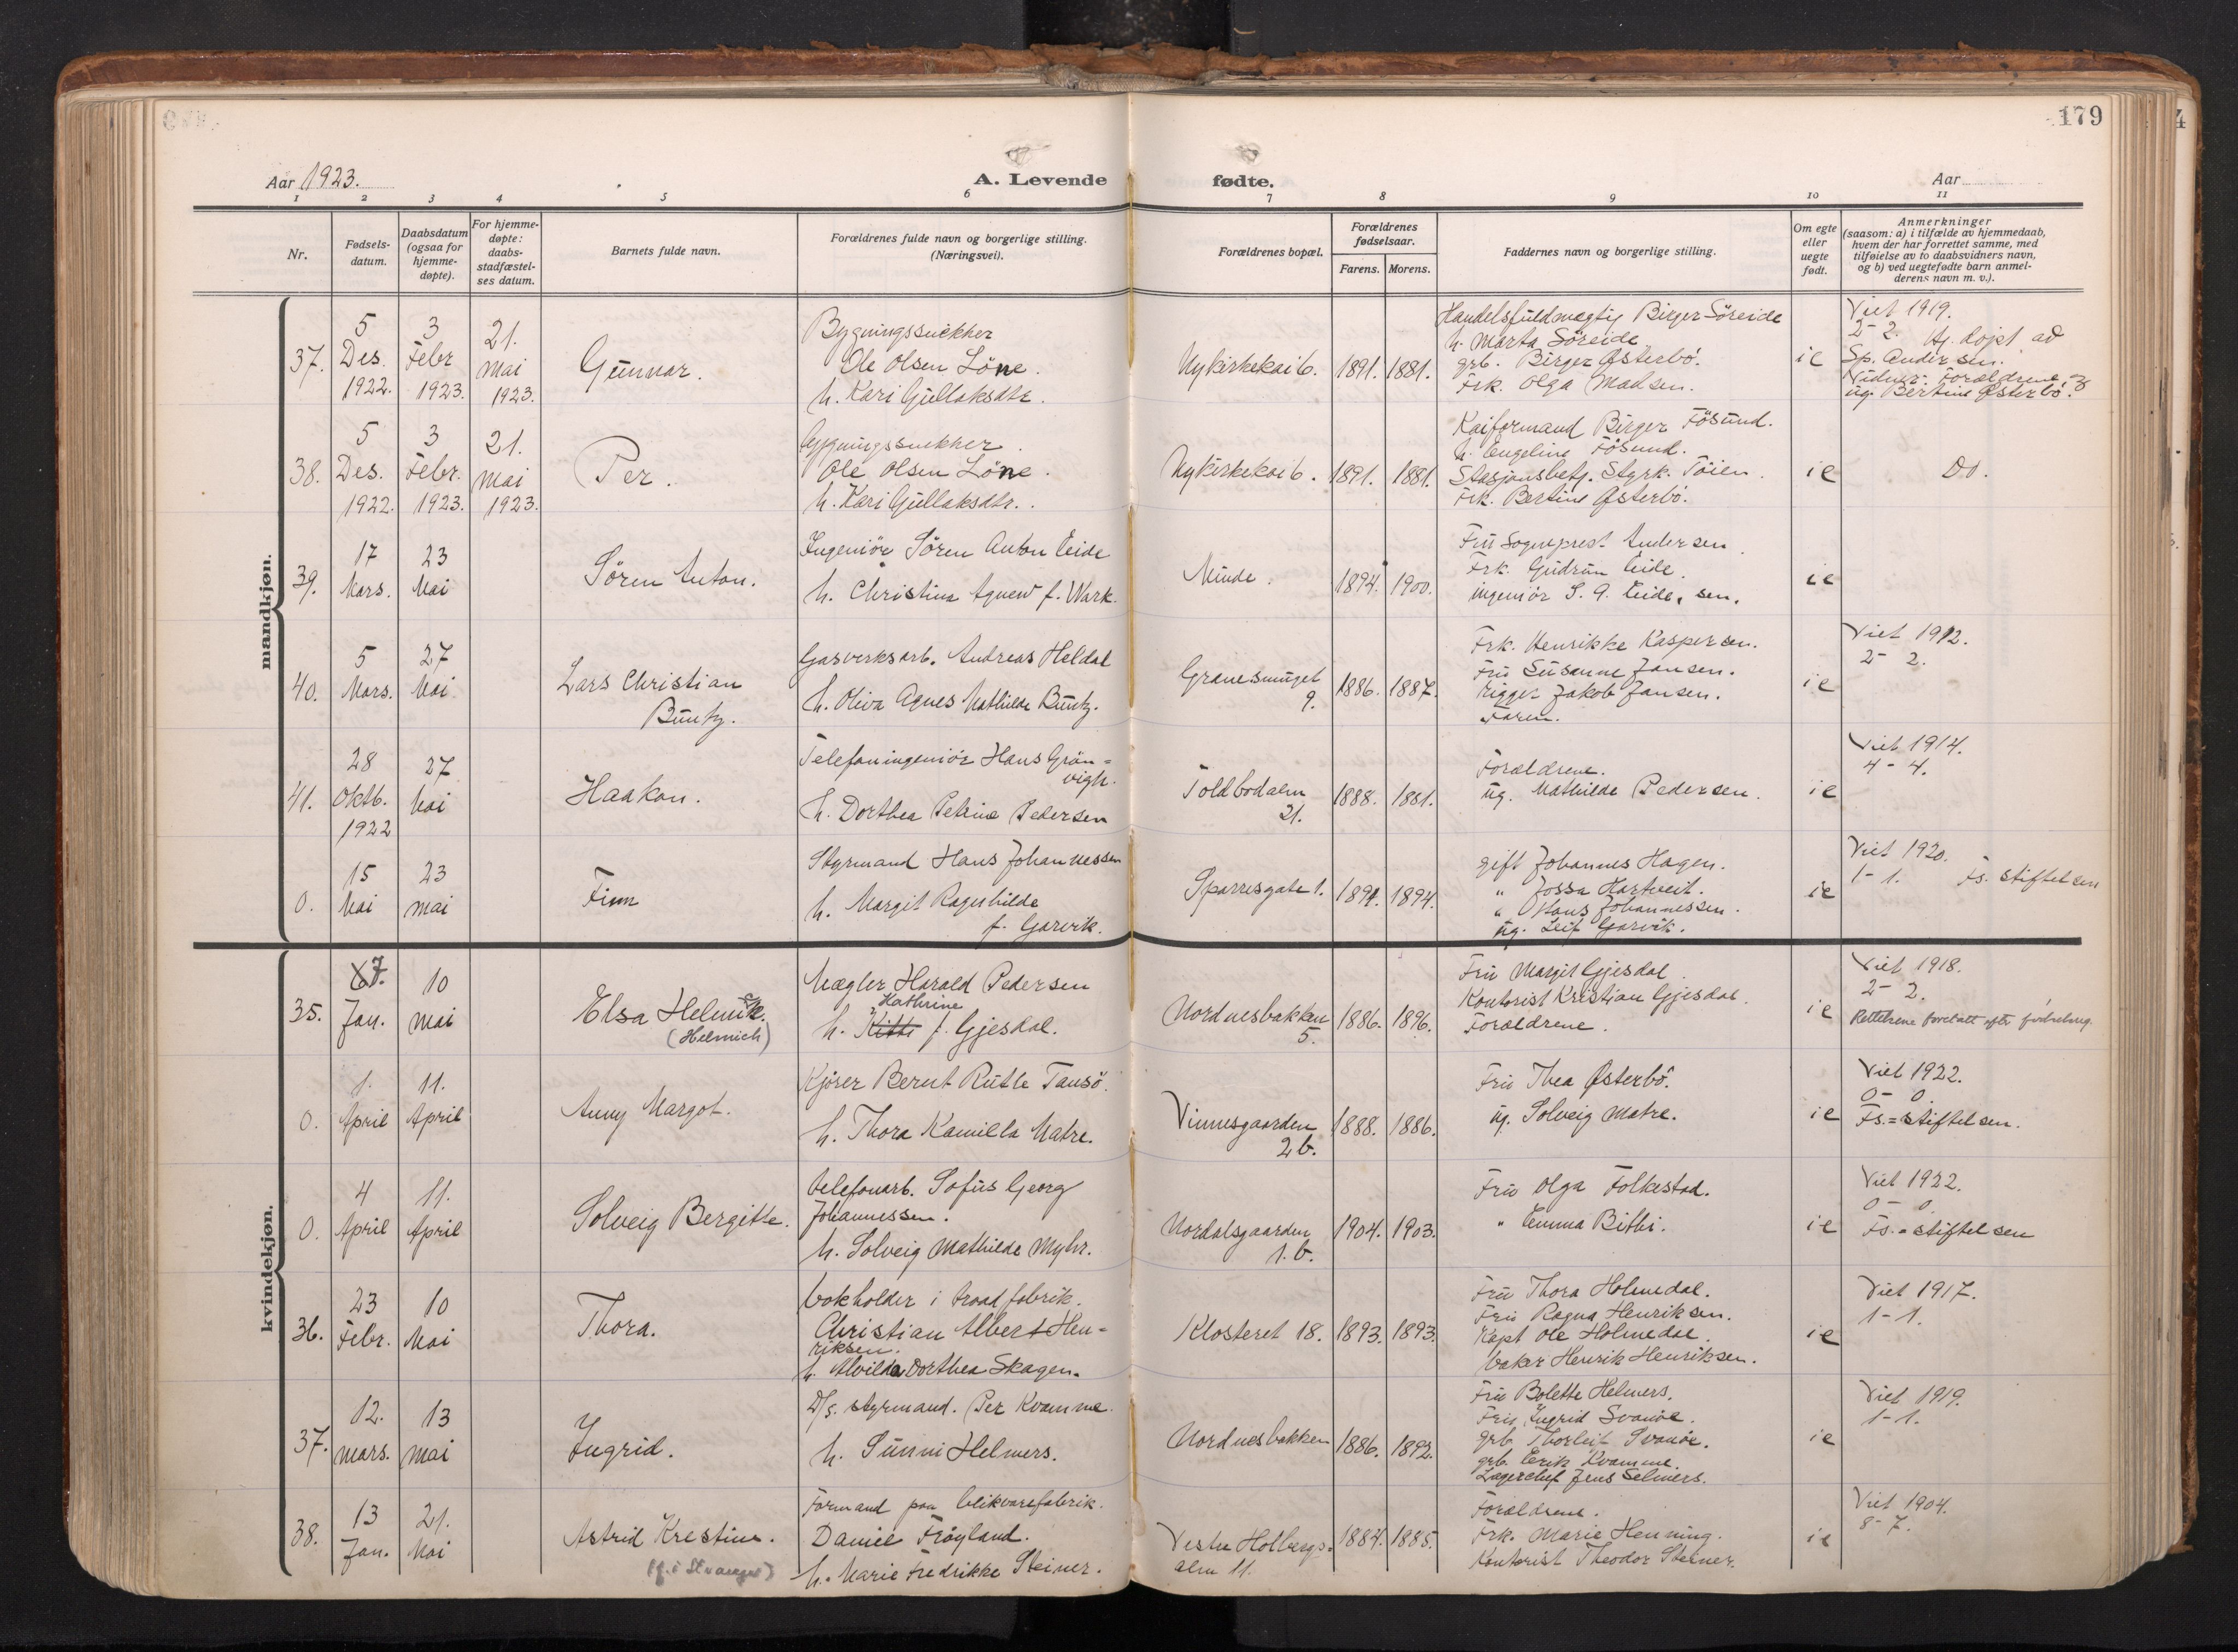 179
Aar 1923.
A. Levende fødte.
Aar
1 2 3 4 5 6 7 8 9 10 11
Nr.
Fødsels-
datum.
Daabsdatum
(ogsaa for
hjemme-
døpte).
For hjemme-
døpte:
daabs-
stadfæstel-
ses datum.
Barnets fulde navn.
Forældrenes fulde navn og borgerlige stilling.
(Næringsvei).
Forældrenes bopæl.
Forældrenes
fødselsaar.
Farens. Morens.
Faddernes navn og borgerlige stilling.
Om egte
eller
uegte
født.
Anmerkninger
(saasom: a) i tilfælde av hjemmedaab,
hvem der har forrettet samme, med
tilføielse av to daabsvidners navn,
og b) ved uegtefødte barn anmel-
derens navn m. v.).
mandkjøn.
37.
5
Des.
1922.
3
Febr
1923.
21.
Mai
1923.
Gunnar.
Bygningssnekker
Ole Olsen Löne.
h. Kari Gullaksdtr.
Nykirkekai 6.
1891. 1881.
Handelsfuldmægtig Birger Söreide
h. Marta Söreide
grb. Birger Østerbö.
Frk. Olga Madsen.
ie
Viet 1919.
2- 2. Hj. døpt av
Sp. Andersen.
Vidner: Forældrene og
ug. Bertine Østerbö.
38.
5
Des.
1922.
3
Febr.
1923.
21.
Mai
1923.
Per.
bygningssnekker.
Ole Olsen Löne.
h. Kari Gullaksdtr.
Nykirkekai 6.
1891. 1881.
Kaiformand Birger Fösund.
h. Engeline Fösund.
Stasjonsbetj. Styrk. Töien.
Frk. Bertine Østerbö.
ie
Do.
39.
17
Mars.
23
Mai
Sören Anton.
Ingeniör Sören Anton Eide
h. Christina Agnew f. Wark.
Minde.
1894. 1900.
Fru Sogneprest Andersen.
Frk. Gudrun Eide.
ingeniör S. A. Eide, sen.
ie
40.
5
Mars.
27
Mai.
Lars Christian
Buntz.
Gasverksarb. Andreas Heldal
h. Oliva Agnes Mathilde Buntz.
Granesmuget
9.
1886. 1887.
Frk. Henrikke Kaspersen.
Fru Susanne Jansen.
rigger Jakob Jansen.
Faren.
ie
Viet 1912.
2- 2.
41.
28
Oktb.
1922
27
Mai
Haakon.
Telefoningeniör Hans Grön-
vigh.
h. Dorthea Petrine Pedersen
Toldbodalm
21.
1888. 1881.
Forældrene.
ug. Mathilde Pedersen.
ie
Viet 1914.
4- 4.
0.
15
Mai
23
mai
Finn
Styrmand Hans Johannessen
h. Margit Ragnhilde
f. Garvik.
Sparresgate 1.
1894. 1894.
gift Johannes Hagen.
" Jossa Hartveit.
" Hans Johannessen.
ug. Leif Garvik.
ie
Viet 1920.
1- 1. Fs. stiftelsen
kvindekjøn.
35.
7.
Jan.
10
mai
Elsa Helmich.
(Helmich)
Mægler Harald Pedersen
Kathrine
h. Kitti f. Gjesdal.
Nordnesbakken
5.
1886. 1896.
Fru Margit Gjesdal.
Kontorist Kristian Gjesdal.
Forældrene.
ie
Viet 1918.
2- 2.
Rettelsene foretatt efter
0.
1.
April
11.
April
Anny Margot.
Kjörer Bernt Rutle Tansö.
h. Thora Kamilla Matre.
Vinnesgaarden
2 b.
1888. 1886.
Fru Thea Østerbö.
ug. Solveig Matre.
ie
Viet 1922.
0- 0.
Fs.=stiftelsen.
0.
4
April
11.
April
Solveig Bergitte.
telefonarb. Sofus Georg
Johannessen.
h. Solveig Mathilde Myhr.
Nordalsgaarden
1. b.
1904. 1903.
Fru Olga Folkestad.
" Emma Bitbi.
ie
Viet 1922.
0- 0.
Fs.=stiftelsen
36.
23
Febr.
10
Mai
Thora.
bokholder i traadfabrik.
Christian Albert Hen-
riksen.
h. Alvilda Dorthea Skagen.
Klosteret 18.
1893. 1893.
Fru Thora Holmedal.
Fru Ragna Henriksen.
Kapt Ole Holmedal.
baker Henrik Henriksen.
ie
Viet 1917.
1-1.
37.
12.
mars.
13
mai
Ingrid.
D/s. styrmand. Per Kvamme.
h. Sunni Helmers.
Nordnesbakken
1886. 1892.
Fru Bolette Helmers.
Fru Ingrid Svanöe.
grb. Thorleif Svanöe.
grb. Erik Kvamme.
Lagerchef Jens Selmers.
ie
Viet 1919.
1-1.
38.
13
Jan.
21.
Mai
Astrid Krestine.
(f. i Stavanger)
Formand paa blikvarefabrik.
Daniel Fröyland.
h. Marie Fredrikke Steiner.
Vestre Holbergs-
alm 11.
1884. 1885.
Forældrene.
Frk. Marie Henning.
Kontorist Theodor Steiner.
ie
Viet 1904.
8- 7.